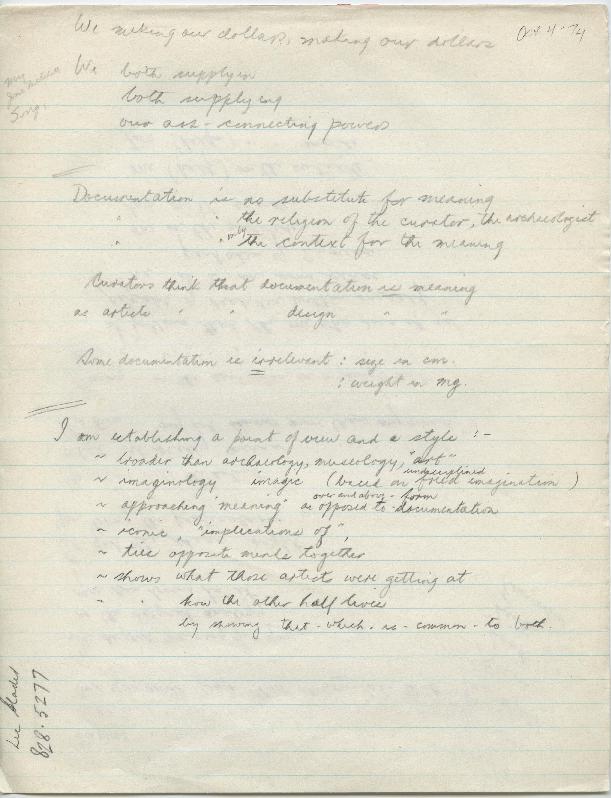 We making our dollars, making our dollars
Oct 4 - 74
We both supplyin
both supplying
our ass-connecting powers
Song,
Documentation is no substitute for meaning
" " the religion of the curator, the archaeologist
" " only the context for the meaning
Curators think that documentation is meaning
as artists " " design " "
Some documentation is irrelevant : size in cm.
: weight in mg.
I am establishing a point of view and a style :-
~ broader than archaeology, museology, "art"
~ imaginology imagic (based on undisciplined freed imagination)
~ approaching "meaning" over and above - form as opposed to documentation
~ iconic, "implications of",
~ ties opposite minds together
~ shows what those artists were getting at
" " how the other half lives
by showing that-which-is-common-to both.
Lee Slades
828-5277